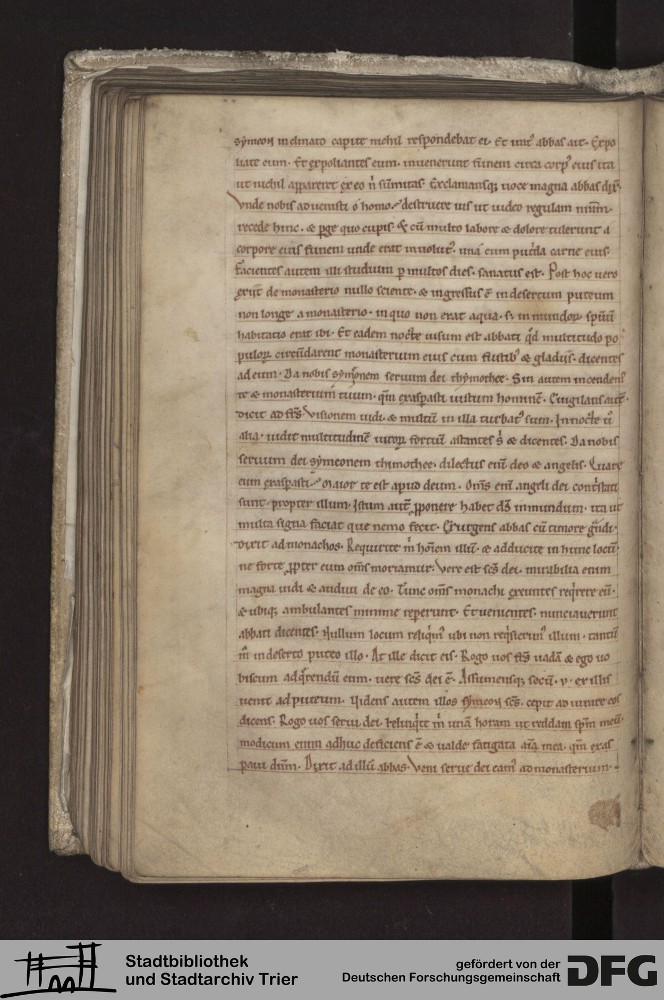 symeon inclinato capite nichil respondebat ei. Et iratꝰ abbas ait. Expo
liate eum. Et expoliantes eum. inuenerunt funem circa corpꝰ eius ita
ut nichil appareret ex eo ñ sūmitas. Exclamansq; uoce magna abbas dix̄.
Vnde nobis aduenisti o homo. destruere uis ut uideo regulam nrām.
recede hinc. & p̄ge quo cupis. & cū multo labore & dolore tulerunt a
corpore eius funem unde erat inuolutꝰ. una cum putrida carne eius.
Facientes autem illi studium p multos dies. sanatus est. Post hoc uero
exiit de monasterio nullo sciente. & ingressus ē in desertum puteum
non longe a monasterio. in quo non erat aqua. s; inmundoꝝ spūū
habitatio erat ibi. Et eadem nocte uisum est abbati qd multitudo po
puloꝝ circūdarent monasterium eius cum fustibꝰ & gladiis. dicentes
ad eum. Da nobis symeonem seruum dei thymothee. Sin autem incendemꝰ
te & monasterium tuum. qm̄ exaspasti iustum hominē. Euigilans autē
dixit ad frs̄. Visionem uidi. & multū in illa turbatꝰ sum. In nocte ū
alia. uidit multitudinē uiroꝝ fortiū astantes s; & dicentes. Da nobis
seruum dei symeonem thimothee. dilectus enī deo & angelis. Quare
eum exaspasti. Maior te est apud deum. Oms̄ enī angeli dei contristati
sunt. propter illum. Istum autē p̄ponere habet ds̄ in mundum. ita ut
multa signa faciat que nemo fecit. Exurgens abbas cū timore grandi.
dixit ad monachos. Requirite m̄ hoīem illū. & adducite in hunc locū.
ne forte p̄pter eum oms̄ moriamur. Vere est scs̄ dei. mirabilia enim
magna uidi & audiui de eo. Tunc oms̄ monachi exeuntes req̄rere eū.
& ubiq; ambulantes minime reperunt. Et uenientes. nunciauerunt
abbati dicentes. Nullum locum reliq̄mꝰ ubi non req̄siuimꝰ illum. tantū
m̄ in deserto puteo illo. At ille dicit eis. Rogo uos frs̄ uadā & ego uo
biscum ad q̄rendū eum. uere scs̄ dei ē. Assumensq; secū .v. ex illis
uenit ad puteum. Videns autem illos symeon scs̄. cepit adiurare eos
dicens. Rogo uos serui dei. relinq̄te m̄ unā horam ut reddam spm̄ meū.
modicum enim adhuc deficiens ē & ualde fatigata aīa mea. qm̄ exas
paui dnm̄. Dixit ad illū abbas. Veni serue dei eamꝰ ad monasterium.
Stadtbibliothek
und Stadtarchiv Trier
gefördert von der
Deutschen Forschungsgemeinschaft
DFG